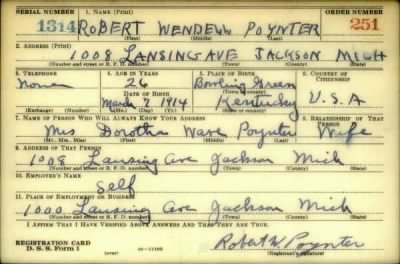 SERIAL NUMBER 1. NAME (Print) ORDER NUMBER
1314 ROBERT WENDELL POYNTER 251
(First) (Middle) (Last)
2. ADDRESS (Print)
1008 LANSING AVE JACKSON MICH
(Number and street or R. F. D. number) (Town) (County) (State)
3. TELEPHONE 4. AGE IN YEARS 5. PLACE OF BIRTH 6. COUNTRY OF CITIZENSHIP
None 26 Bowling Green
DATE OF BIRTH (Town or county)
March 7 1914 Kentucky U.S.A
(Exchange) (Number) (Mo.) (Day) (Yr.) (State or country)
7. NAME OF PERSON WHO WILL ALWAYS KNOW YOUR ADDRESS 8. RELATIONSHIP OF THAT PERSON
Mrs Dorotha Ware Poynter Wife
(Mr., Mrs., Miss) (First) (Middle) (Last)
9. ADDRESS OF THAT PERSON
1008 Lansing Ave Jackson Mich
(Number and street or R. F. D. number) (Town) (County) (State)
10. EMPLOYER'S NAME
Self
11. PLACE OF EMPLOYMENT OR BUSINESS
1000 Lansing Ave Jackson Mich
(Number and street or R. F. D. number) (Town) (County) (State)
I AFFIRM THAT I HAVE VERIFIED ABOVE ANSWERS AND THAT THEY ARE TRUE.
REGISTRATION CARD
D. S. S. Form 1 Robert W. Poynter
(Registrant's signature)